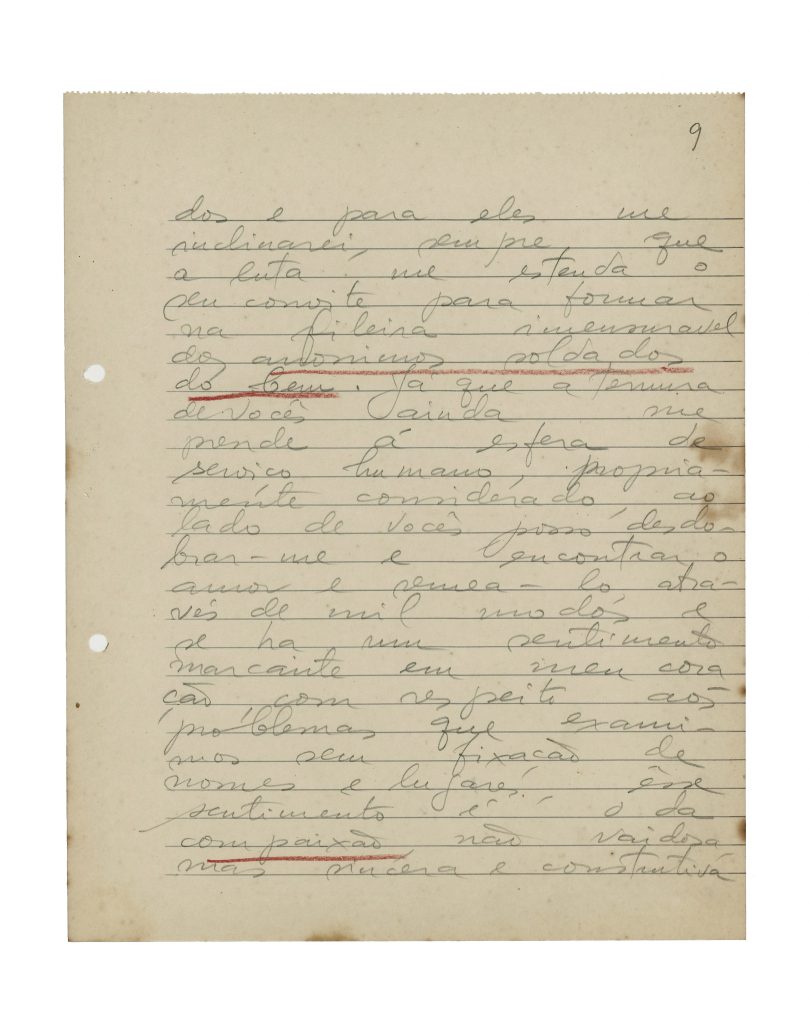 9
dos e para eles me
inclinarei, sempre que
a luta me estenda o
seu convite para formar
na fileira imensuravel
dos anonimos soldados
do bem. Já que a ternura
de vocês ainda me
prende á esfera de
serviço humano, propria-
mente considerado, ao
lado de vocês posso desdo-
brar-me e encontrar o
amor e semea-lo atra-
vés de mil modos e
se ha um sentimento
marcante em meu cora
ção, com respeito aos
problemas que exami-
mos sem fixacão de
nomes e lugares, êsse
sentimento é o da
compaixão não vaidosa
mas sincera e construtiva